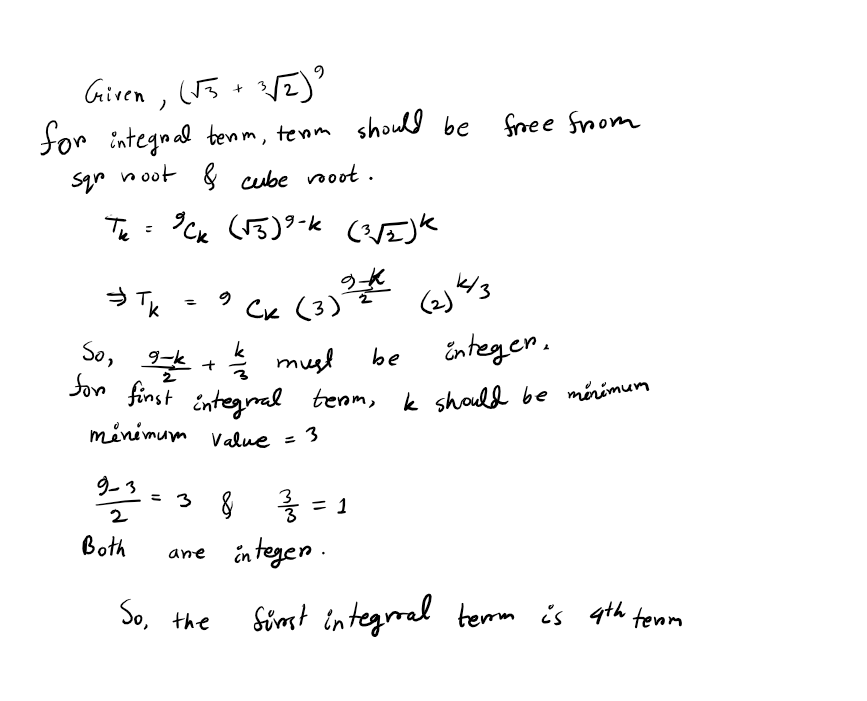 Given, (√3 + ³√2)⁹
for integral term, term should be free from
sqr root & cube root.
Tₖ = ⁹Cₖ (√3)⁹⁻ᵏ (³√2)ᵏ
⇒ Tₖ = ⁹Cₖ (3)^((9-k)/2) (2)^(k/3)
So, (9-k)/2 + k/3 must be integer.
for first integral term, k should be minimum
minimum value = 3
(9-3)/2 = 3 & 3/3 = 1
Both are integer.
So, the first integral term is 4th term